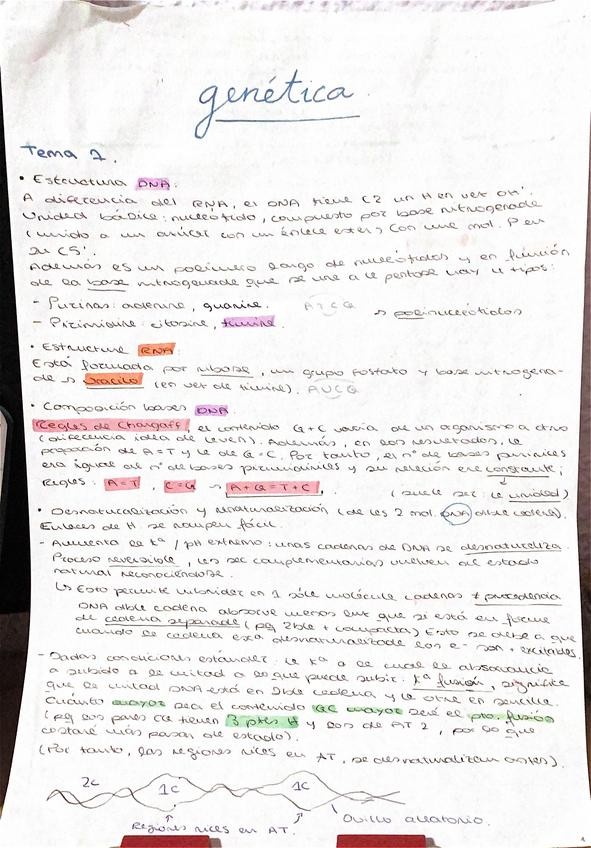 genética
Tema 1.
• Estructura DNA.
A diferencia del RNA, el DNA tiene C2 un H en vez OH'.
Unidad básica: nucleótido, compuesto por base nitrogenada
(unido a un azúcar con un enlace ester) con una mol. P en
su C5'.
Además es un polímero largo de nucleótidos y en función
de la base nitrogenada que se une a la pentosa hay 4 tipos:
- Purinas: adenina, guanina. ATCG → polinucleótidos
- Pirimidina: citosina, timina.
• Estructura RNA
Está formada por ribosa, un grupo fosfato y base nitrogena-
da → Uracilo (en vez de timina). AUCG
• Composición bases DNA.
Reglas de Chargaff, el contenido G+C varía de un organismo a otro
(diferencia idea de Leven). Además, en los resultados, la
proporción de A=T y la de G=C. Por tanto, el nº de bases puricas
era igual al nº de bases pirimidínicas y su relación era constante;
Reglas: A=T, C=G → A+G=T+C, (suele ser: la unidad)
• Desnaturalización y renaturalización (de las 2 mol. DNA doble cadena).
Enlaces de H. se rompen fácil.
- Aumenta la tª / pH extremo: unas cadenas de DNA se desnaturaliza.
Proceso reversible, las sec complementarias vuelven al estado
natural reconociéndose.
↳ Esto permite hibridar en 1 sola molécula cadenas ≠ procedencia
DNA dble cadena absorve menos luz que si está en forma
de cadena separada (pq 2ble + compacta) Esto se debe a que
cuando la cadena está desnaturalizada los e- son + excitables.
- Dadas condiciones estándar: la tª a la cual la absorvancia
a subido a la mitad a lo que puede subir: tª fusión, significa
que la mitad DNA está en 2ble cadena y la otra en sencilla.
Cuánto mayor sea el contenido GC mayor será el pto. fusión
(pq los pares GC tienen 3 ptes H y los de AT 2, por lo que
costará más pasar de estado).
(Por tanto, las regiones ricas en AT, se desnaturalizan antes).
2c 1c 1c
Regiones ricas en AT. Ovillo aleatorio.